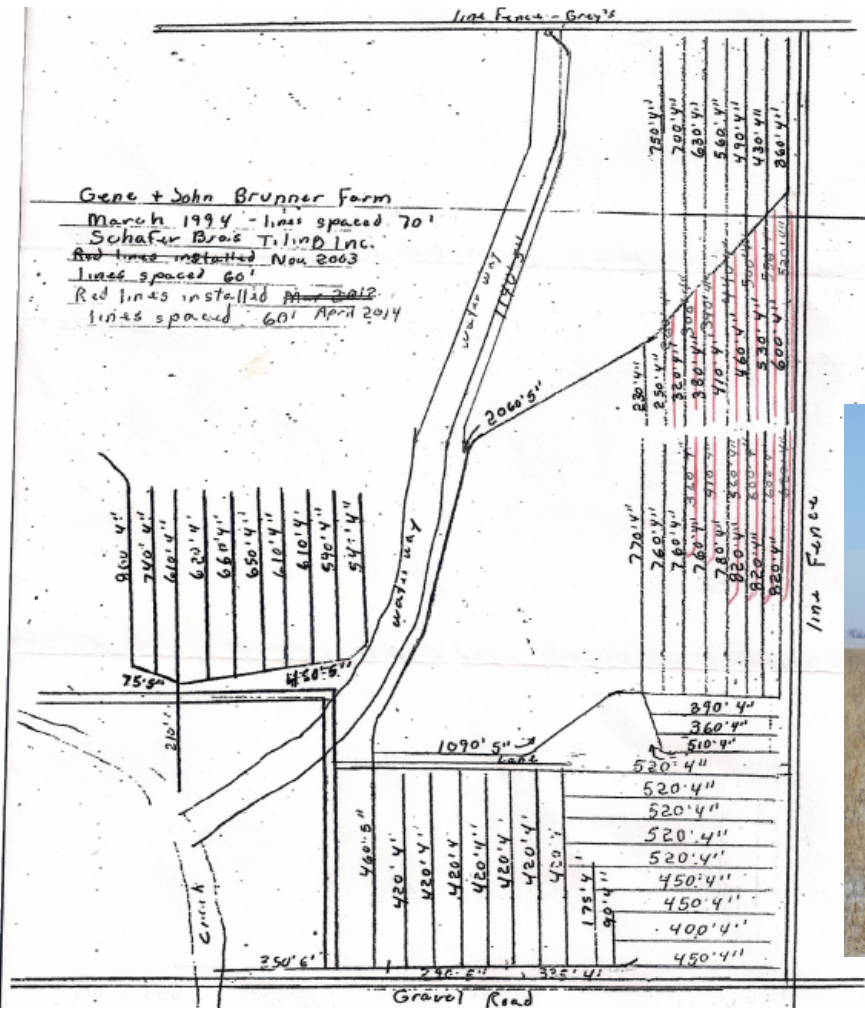 line Fence - Grey's
Gene + John Brunner Farm
March 1994 - lines spaced 70'
Schafer Bros Tiling Inc.
Red lines installed Nov. 2003
lines spaced 60'
Red lines installed Mar 2012
lines spaced 60' April 2014
water way
1190' 5"
2060' 5"
water way
750'4"
700'4"
630'4"
560'4"
490'4"
430'4"
360'4"
230'4"
250'4"
320'4"
380'4"
410'4"
460'4"
530'4"
600'4"
770'4"
760'4"
760'4"
760'4"
780'4"
820'4"
820'4"
820'4"
line Fence
860'4"
740'4"
610'4"
620'4"
660'4"
650'4"
610'4"
610'4"
590'4"
75'5"
210'
390'4"
360'4"
510'4"
1090'5"
Lane
520'4"
520'4"
520'4"
520'4"
520'4"
450'4"
450'4"
400'4"
450'4"
460'5"
420'4'
420'4"
420'4
420'4"
420'4
420'4"
420'4
175'4"
90'4"
Creek
350'6"
290'5"
325'4"
Gravel Road